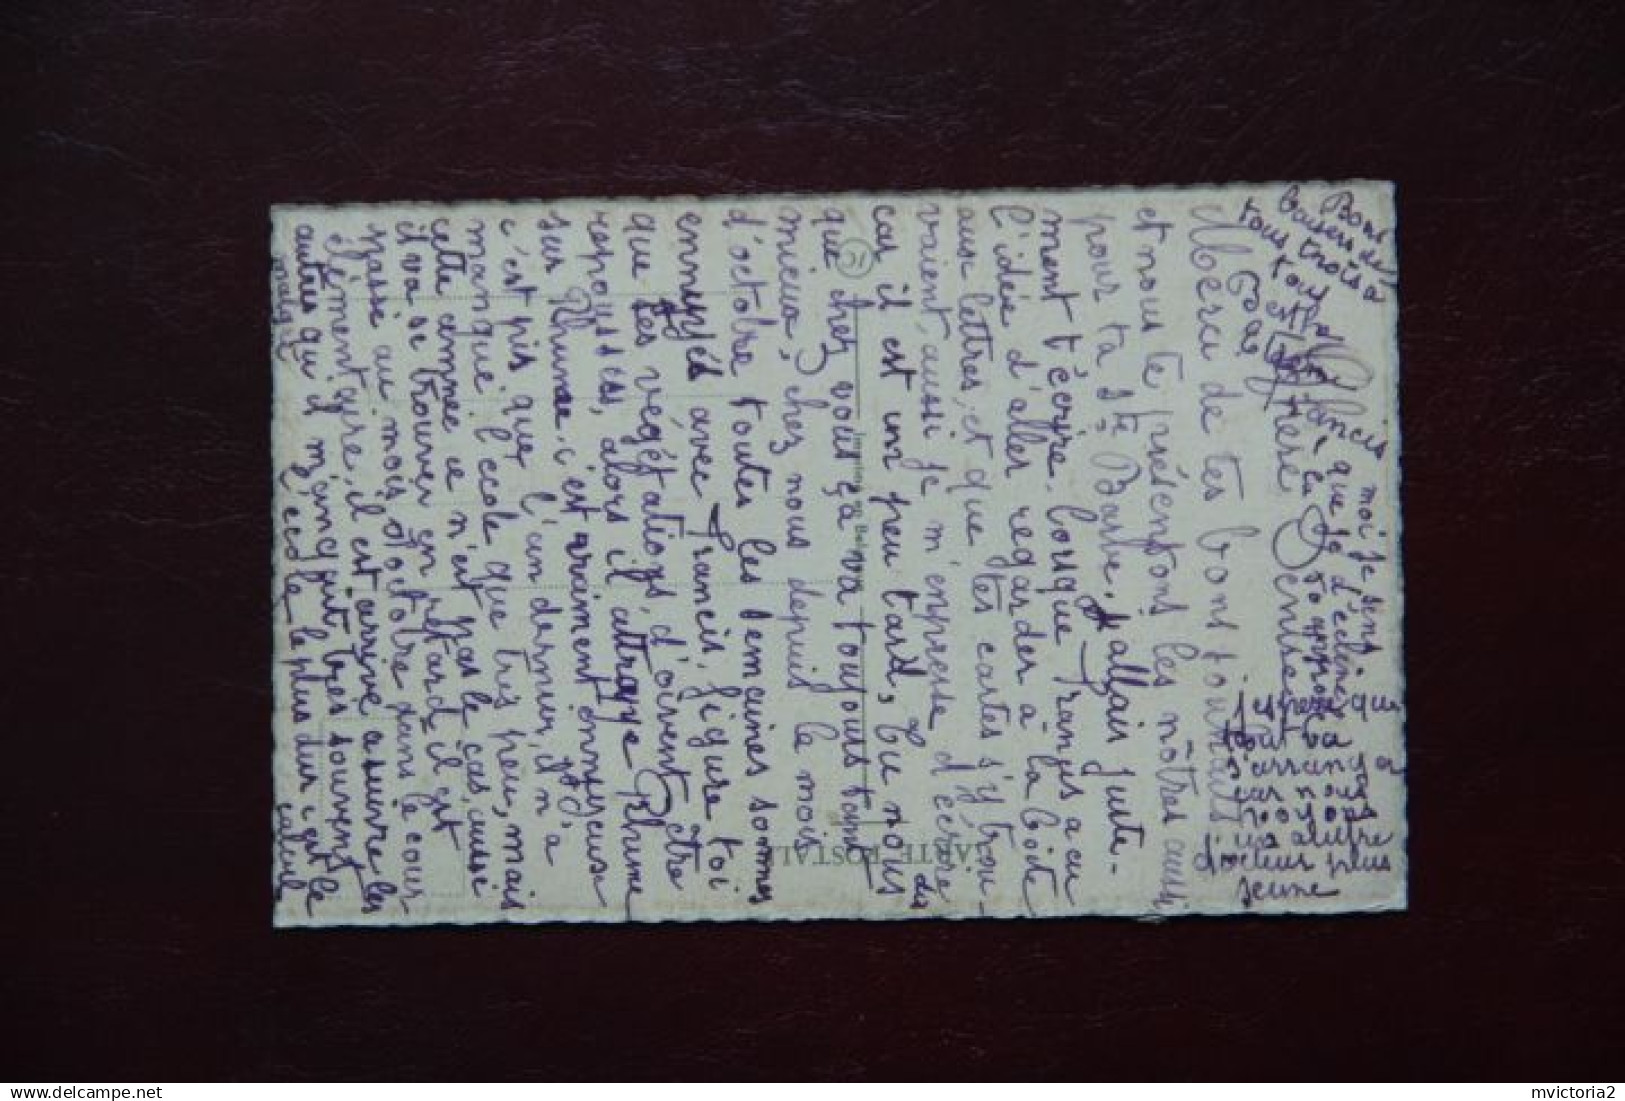 Merci de tes bons souhaits
et nous te présentons les nôtres aussi
pour ta Ste Barbe. J'allais juste-
ment t'écrire, lorsque Françis a eu
l'idée d'aller regarder à la boîte
aux lettres, et que tes cartes s'y trou-
vaient, aussi je m'empresse d'écrire
car il est un peu tard, Tu nous dis
que chez vous ça va toujours tant
mieux, chez nous depuis le mois
d'octobre toutes les semaines sommes
ennuyés avec Francis, figure toi
que les végétations, doivent être
repoussées, alors il attrape Rhume
sur Rhume, c'est vraiment ennuyeux
c'est pis que l'an dernier, il n'a
manqué l'école que très peu, mais
cette année ce n'est pas le cas, aussi
il va se trouver en retard, il est
passé au mois d'octobre dans le cours
élémentaire, il est arrivé a suivre les
autres qu'il manquait très souvent
malgré l'école le plus dur c'est le calcul
Bons
baisers de
tous trois à
tous
Francis
moi je
que
J'espère que
tout va
s'arranger
car nous
voyons
un autre
docteur plus
jeune
CARTE POSTALE
mvictoria2